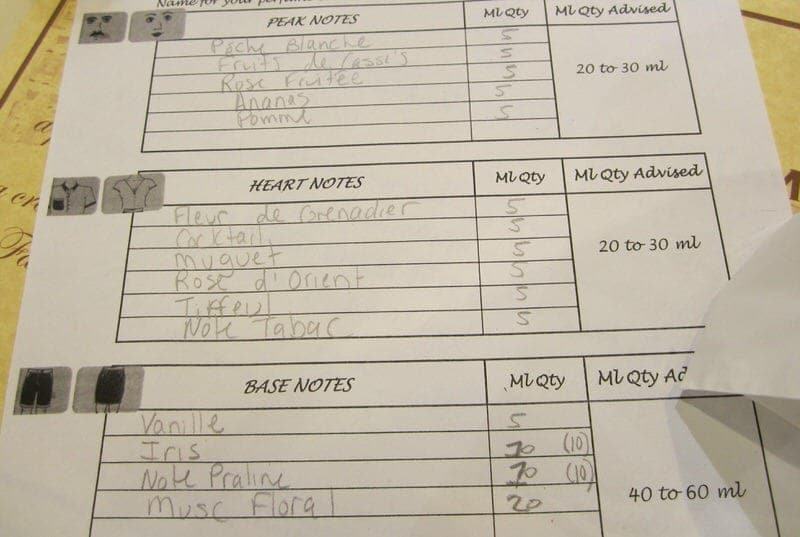 Name for your perfume
PEAK NOTES Ml Qty Ml Qty Advised
Pêche Blanche 5
Fruits de Cassis 5
Rose Fruitée 5
Ananas 5
Pomme 5
20 to 30 ml
HEART NOTES Ml Qty Ml Qty Advised
Fleur de Grenadier 5
Cocktail 5
Muguet 5
Rose d'Orient 5
5
Note Tabac 5
20 to 30 ml
BASE NOTES Ml Qty Ml Qty Ad
Vanille 5
Iris 10 (10)
Note Praline 10 (10)
Musc Floral 20
40 to 60 ml